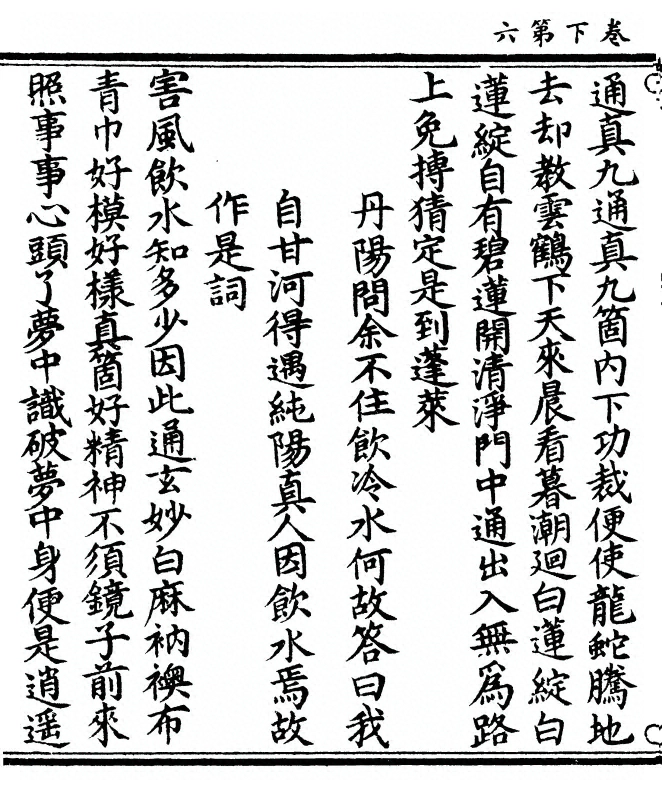 卷下第六
通真九通真九箇内下功裁便使龍虵騰地
去却教雲鶴下天來晨看暮潮廻白蓮綻白
蓮綻自有碧蓮開清淨門中通出入無爲路
上免摶猜定是到蓬萊
丹陽問余不住飲冷水何故答曰我
自甘河得遇純陽真人因飲水焉故
作是詞
害風飲水知多少因此通玄妙白麻衲襖布
青巾好模好樣真箇好精神不須鏡子前來
照事事心頭了夢中識破夢中身便是逍遥